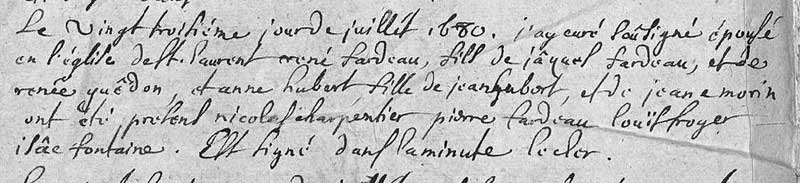 Le vingt troisiéme jour de juillet 1680. j'ay curé soûsigné épousé
en l'église de St. laurent rené fardeau, fils de jâques fardeau, et de
renée quêdon, et anne hubert, fille de jean hubert, et de jeane morin
ont été présens nicolas charpentier pierre fardeau louïs froger
isâc fontaine. Est signé dans la minute lecler.